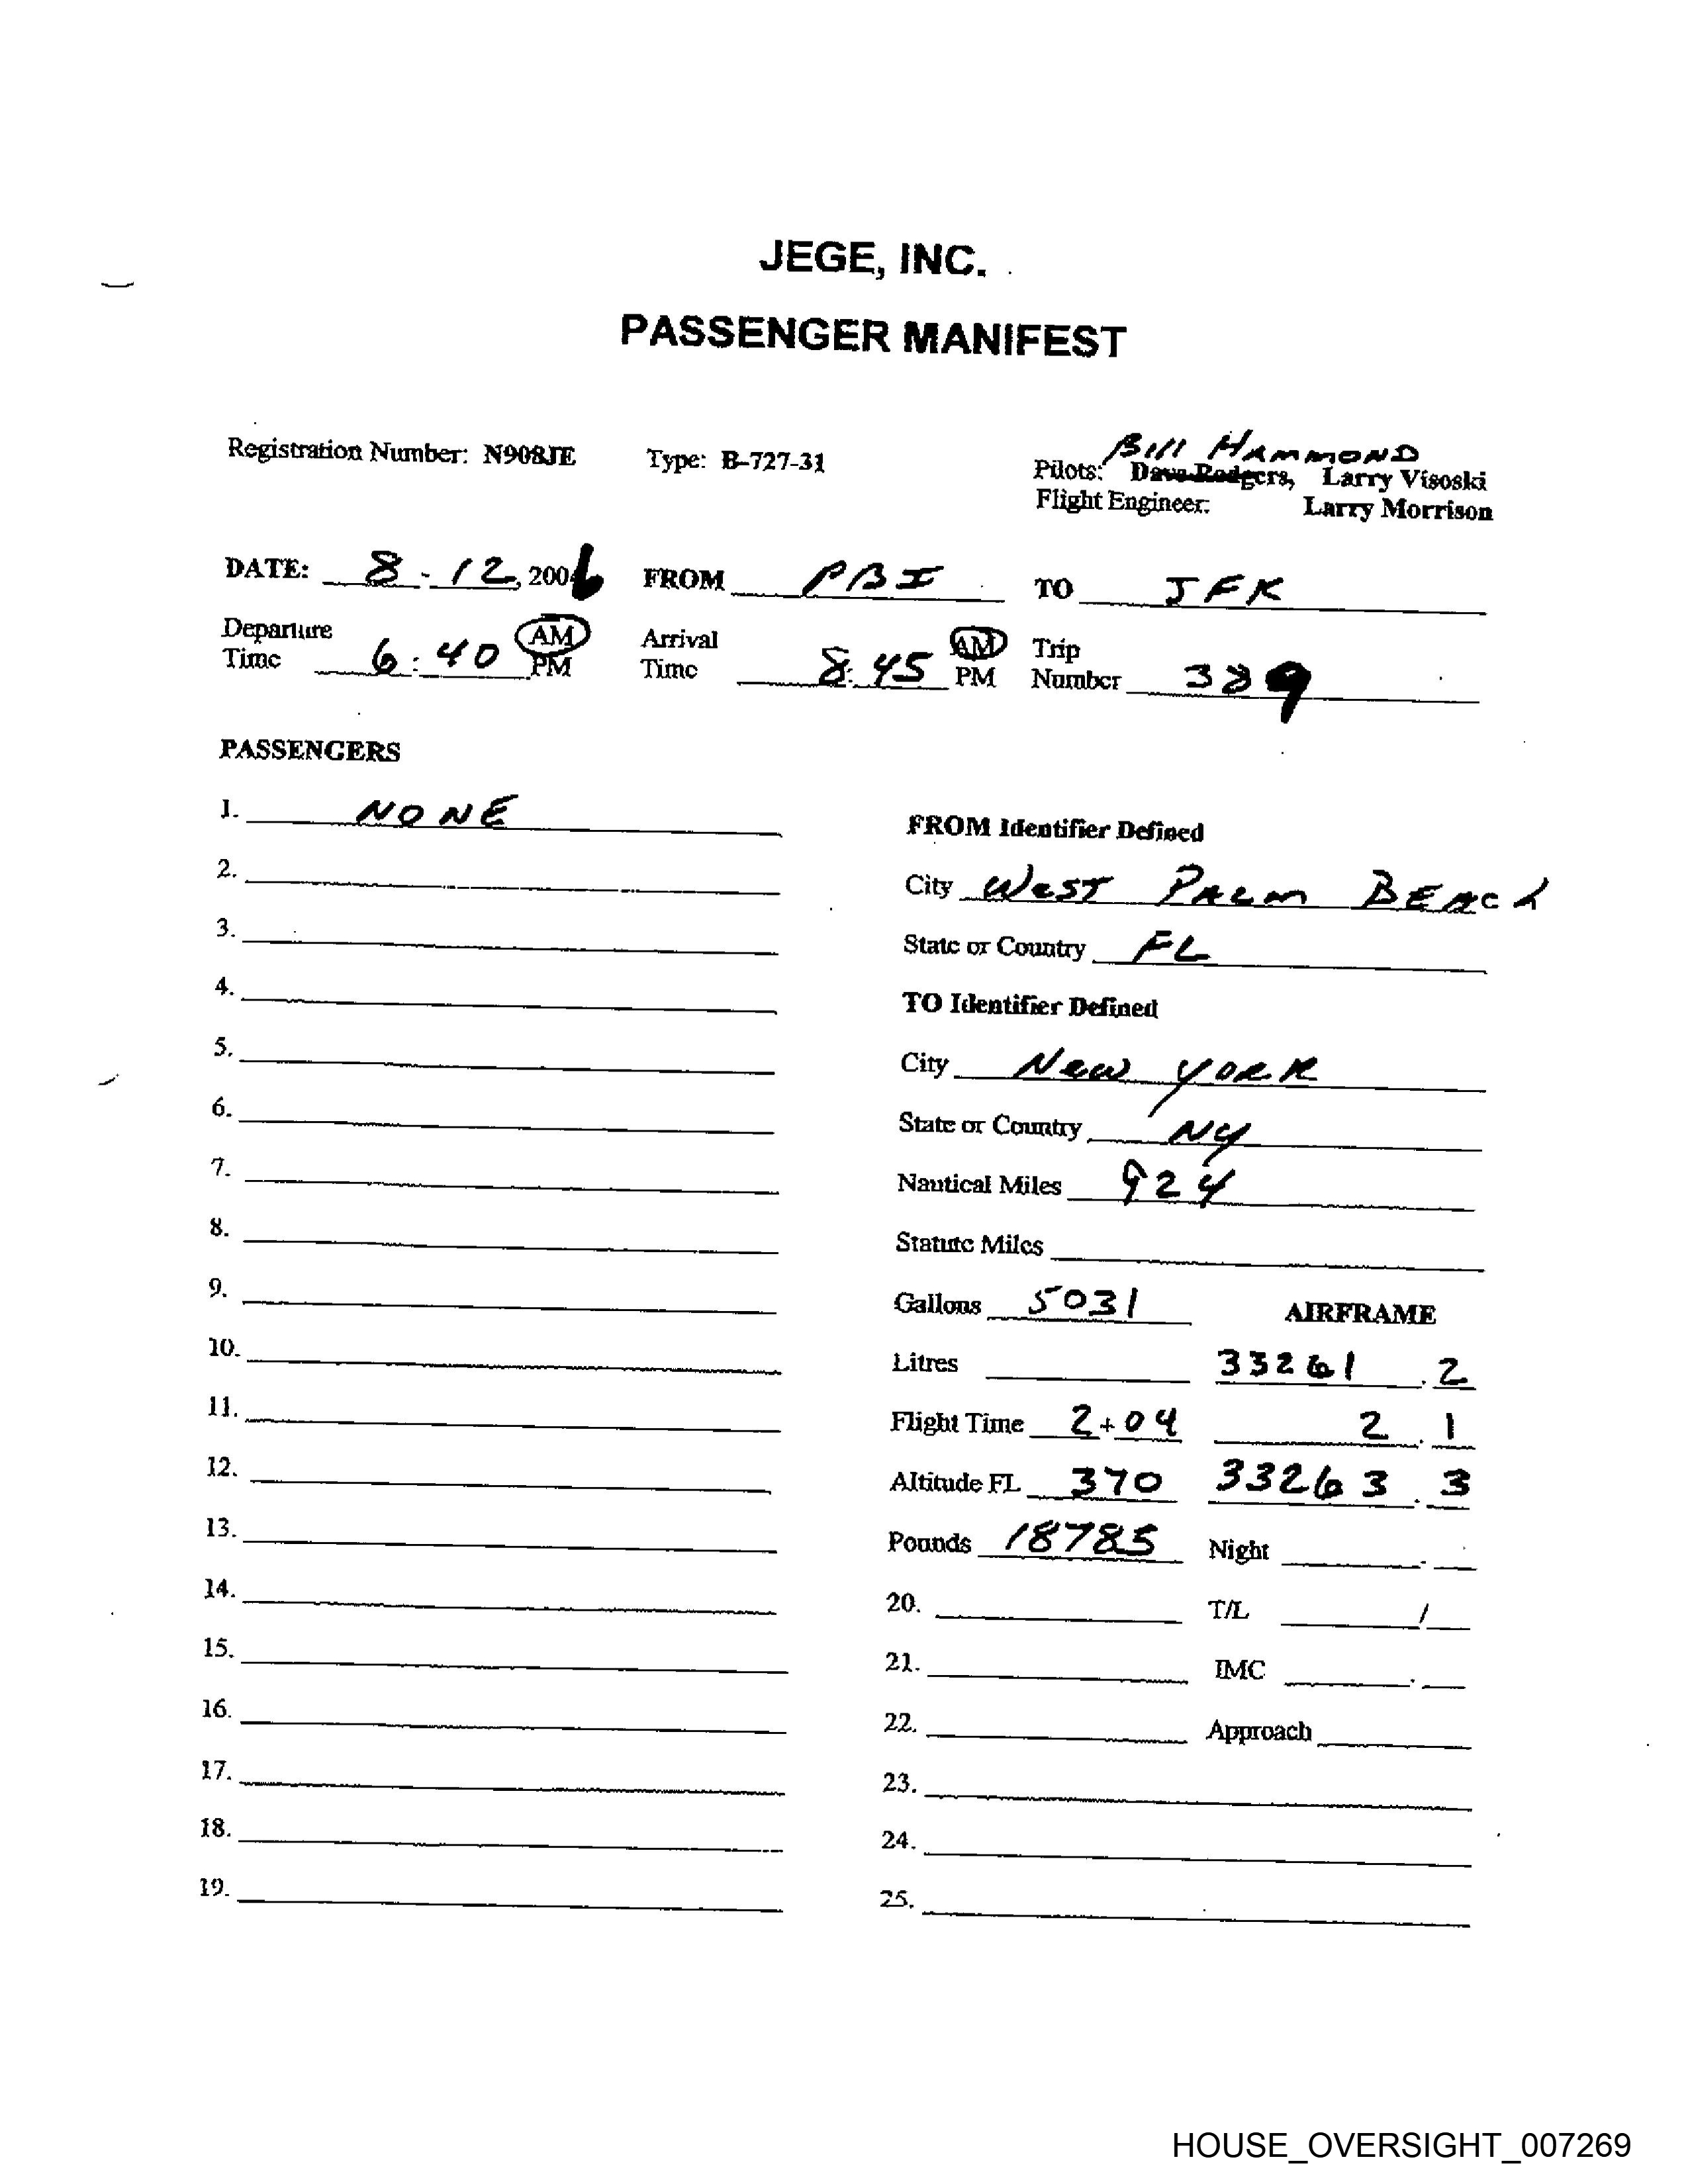 JEGE, INC.
PASSENGER MANIFEST
Registration Number: N908JE Type: B-727-31 Pilots: Dave Rodgers, Bill Hammond Larry Visoski
Flight Engineer: Larry Morrison
DATE: 8-12, 2006 FROM PBI TO JFK
Departure Time 6:40 AM PM Arrival Time 8:45 AM PM Trip Number 389
PASSENGERS
1. NONE
2.
3.
4.
5.
6.
7.
8.
9.
10.
11.
12.
13.
14.
15.
16.
17.
18.
19.
FROM Identifier Defined
City West Palm Beach
State or Country FL
TO Identifier Defined
City New York
State or Country NY
Nautical Miles 924
Statute Miles
Gallons 5031 AIRFRAME
Litres 33261.2
Flight Time 2+04 2.1
Altitude FL 370 33263.3
Pounds 18785 Night .
20. T/L /
21. IMC .
22. Approach
23.
24.
25.
HOUSE_OVERSIGHT_007269